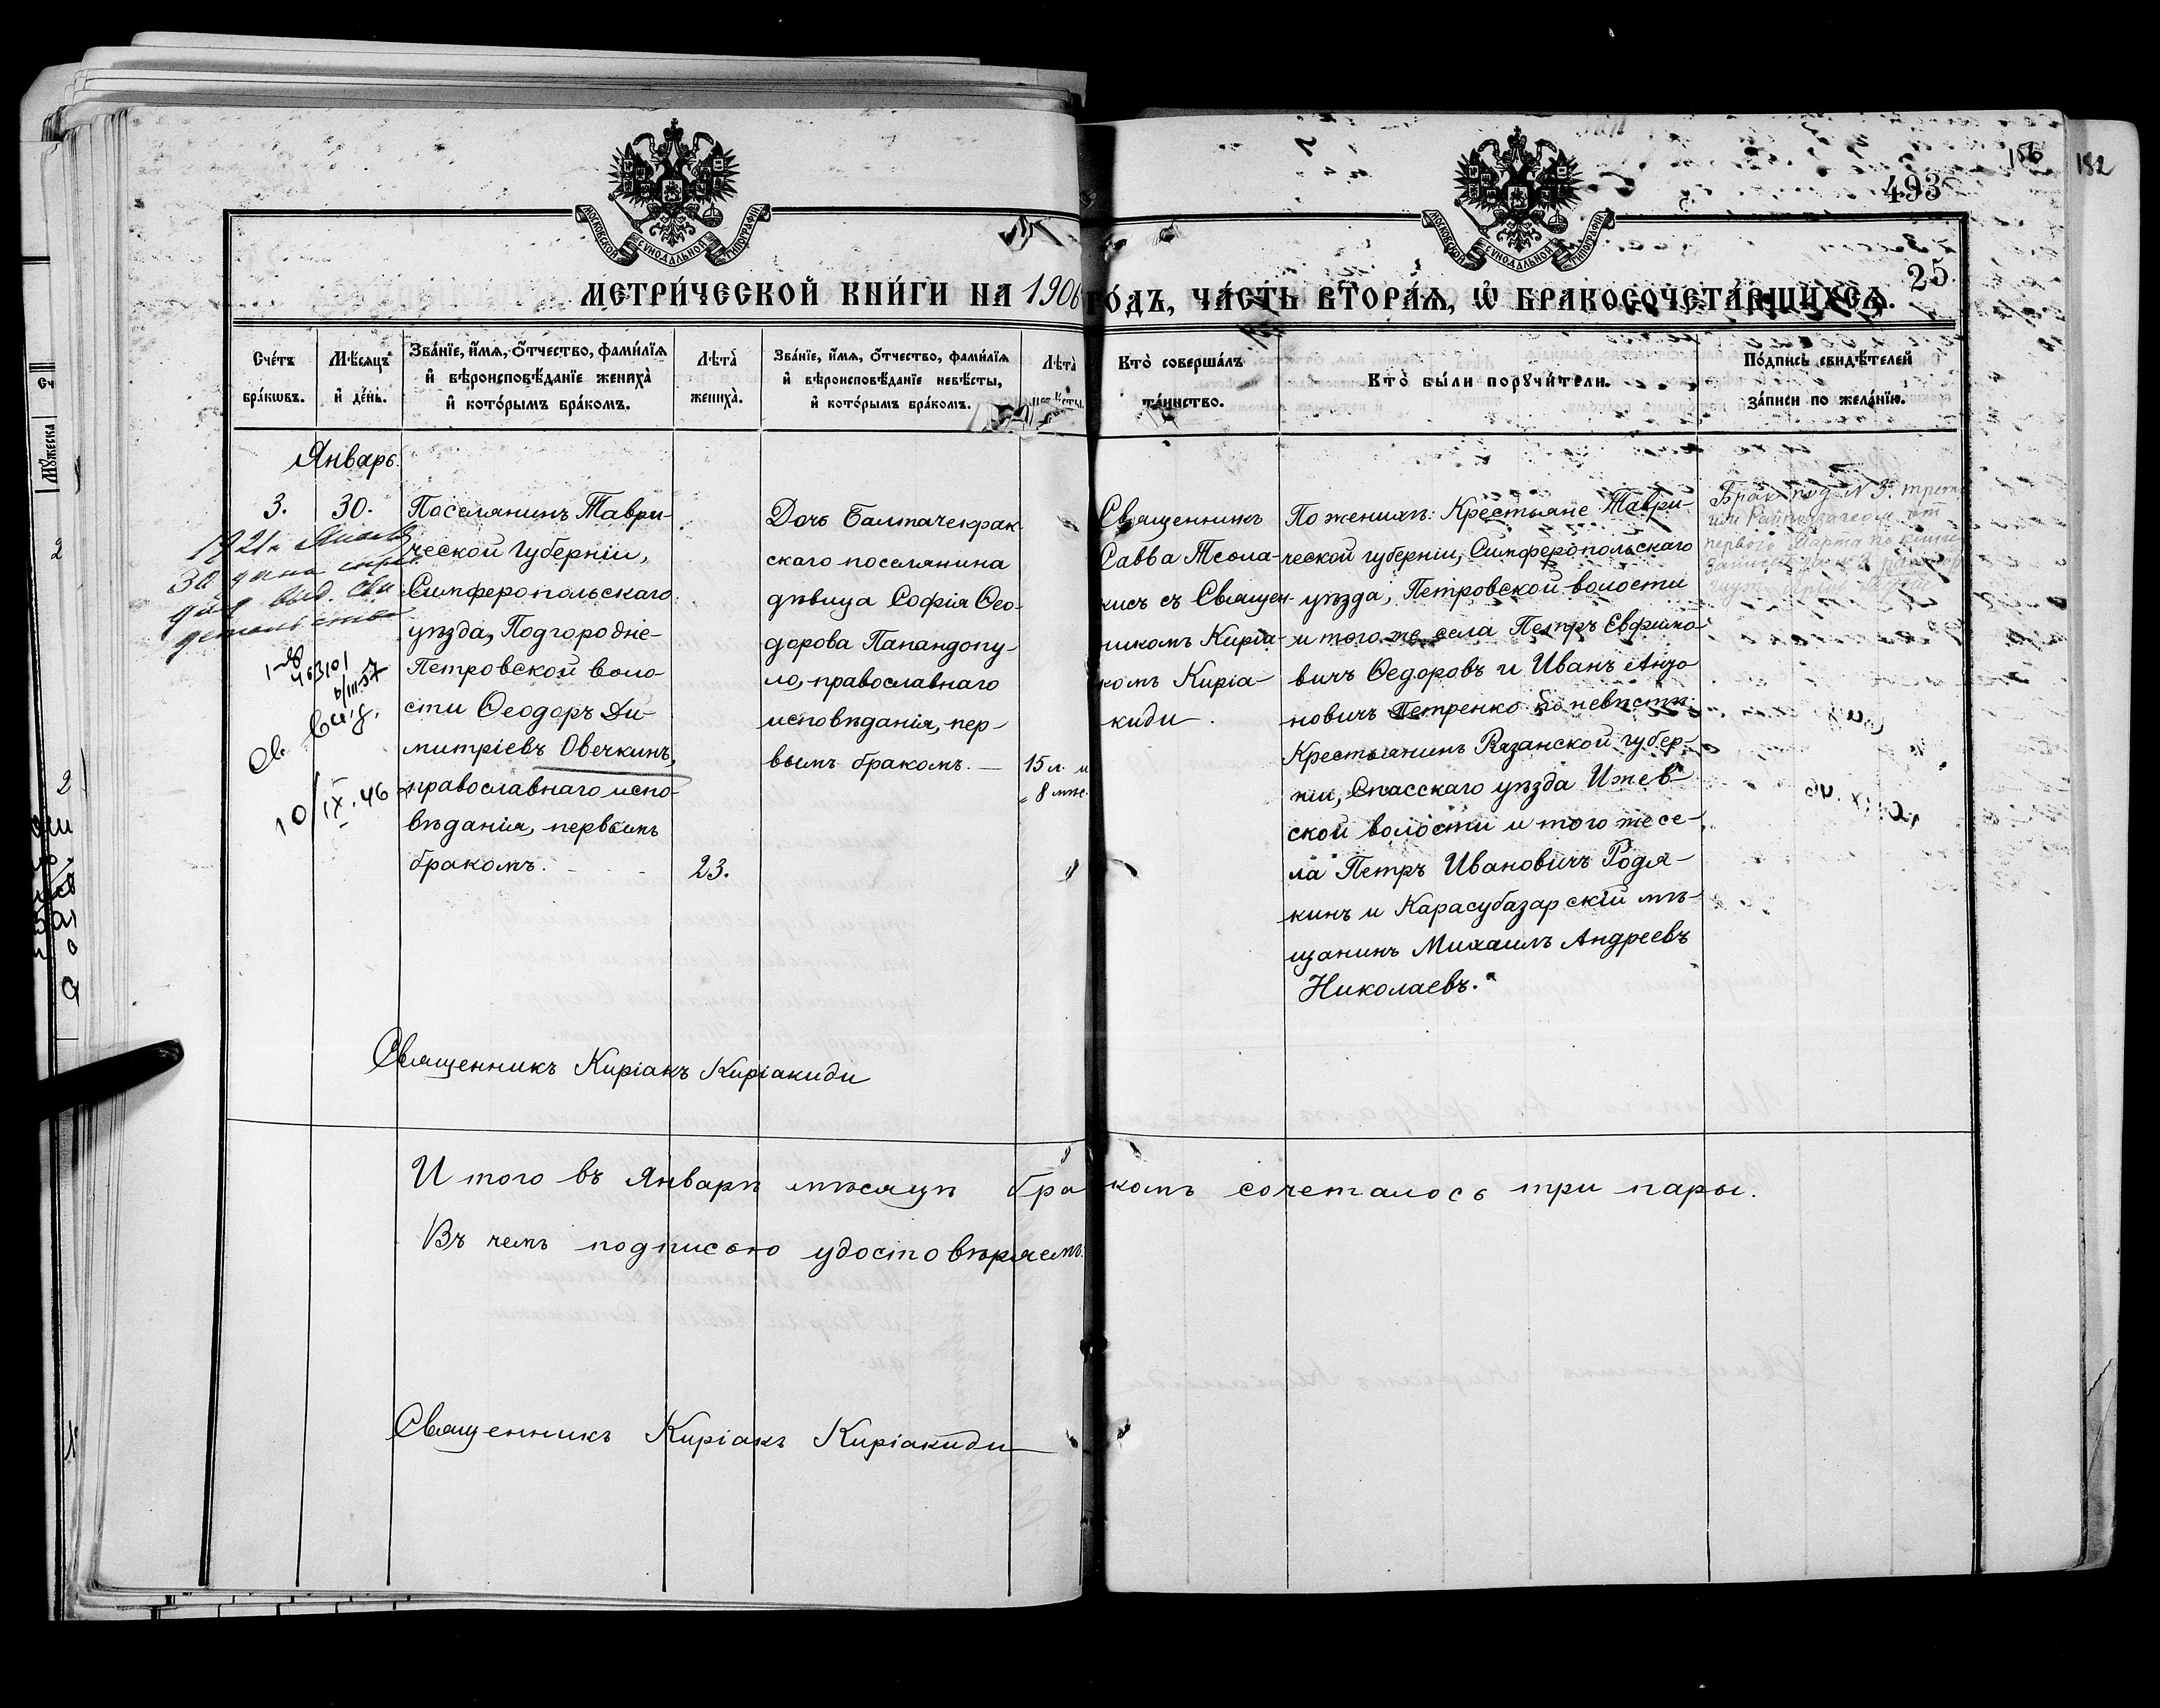 156
182
493
25
МОСКОВСКОЙ СѴНОДАЛЬНОЙ ТИПОГРАФІИ
МОСКОВСКОЙ СѴНОДАЛЬНОЙ ТИПОГРАФІИ
МЕТРИ́ЧЕСКОЙ КНИ́ГИ НА 1906 ГО́ДЪ, ЧА́СТЬ ВТОРА́Я, Ѡ҆ БРАКОСОЧЕТА́ВШИХСЯ.
Сче́тъ
бра́кѡвъ.
Мѣ́сяцъ
и҆ де́нь.
Зва́нїе, и҆́мя, ѻ҆́тчество, фами́лїя
и҆ вѣроисповѣ́данїе жениха̀
и҆ кото́рымъ бра́комъ.
Лѣ́та
жениха̀.
Зва́нїе, и҆́мя, ѻ҆́тчество, фами́лїя
и҆ вѣроисповѣ́данїе невѣ́сты,
и҆ кото́рымъ бра́комъ.
Лѣ́та
невѣ́сты.
Кто̀ соверша́лъ
та́инство.
Кто̀ бы́ли порꙋчи́тели.
По́дпись свидѣ́телей
за́писи по жела́нїю.
Январь.
3.
30.
Поселянинъ Таври-
ческой губерніи,
Симферопольскаго
уѣзда, Подгородне-
Петровской воло-
сти Ѳеодоръ Ди-
митріевъ Овечкинъ,
православнаго испо-
вѣданія, первымъ
бракомъ.
23.
Дочь Балтачекрак-
скаго поселянина
дѣвица Софія Ѳео-
дорова Папандопу-
ло, православнаго
исповѣданія, пер-
вымъ бракомъ. —
15 л. и
8 мѣс.
Священникъ
Савва Тсола-
кисъ съ Священ-
никомъ Киріа-
комъ Киріа-
киди.
По женихѣ: Крестьяне Таври-
ческой губерніи, Симферопольскаго
уѣзда, Петровской волости
и того же села Петръ Евфимо-
вичъ Ѳедоровъ и Иванъ Анто-
новичъ Петренко. По невѣстѣ:
Крестьянинъ Рязанской губер-
ніи, Спасскаго уѣзда Ижев-
ской волости и того же се-
ла Петръ Ивановичъ Родя-
кинъ и Карасубазарскій мѣ-
щанинъ Михаилъ Андреевъ
Николаевъ.
Брак под N 3
первого Марта
1921
30 дана
выд. сви
детельство
463101
6/III-57
Св
10/IX.46
Священникъ Киріакъ Киріакиди
Итого въ Январѣ мѣсяцѣ бракомъ сочеталось три пары.
Въ чемъ подписью удостовѣряемъ.
Священникъ Киріакъ Киріакиди